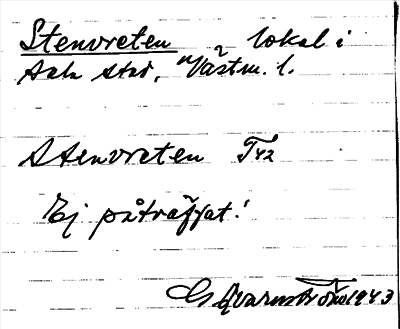 Stenvreten lokal i
Sala stad, Västm. l.
Stenvreten T42
Ej påträffat!
G Qvarnström 1943